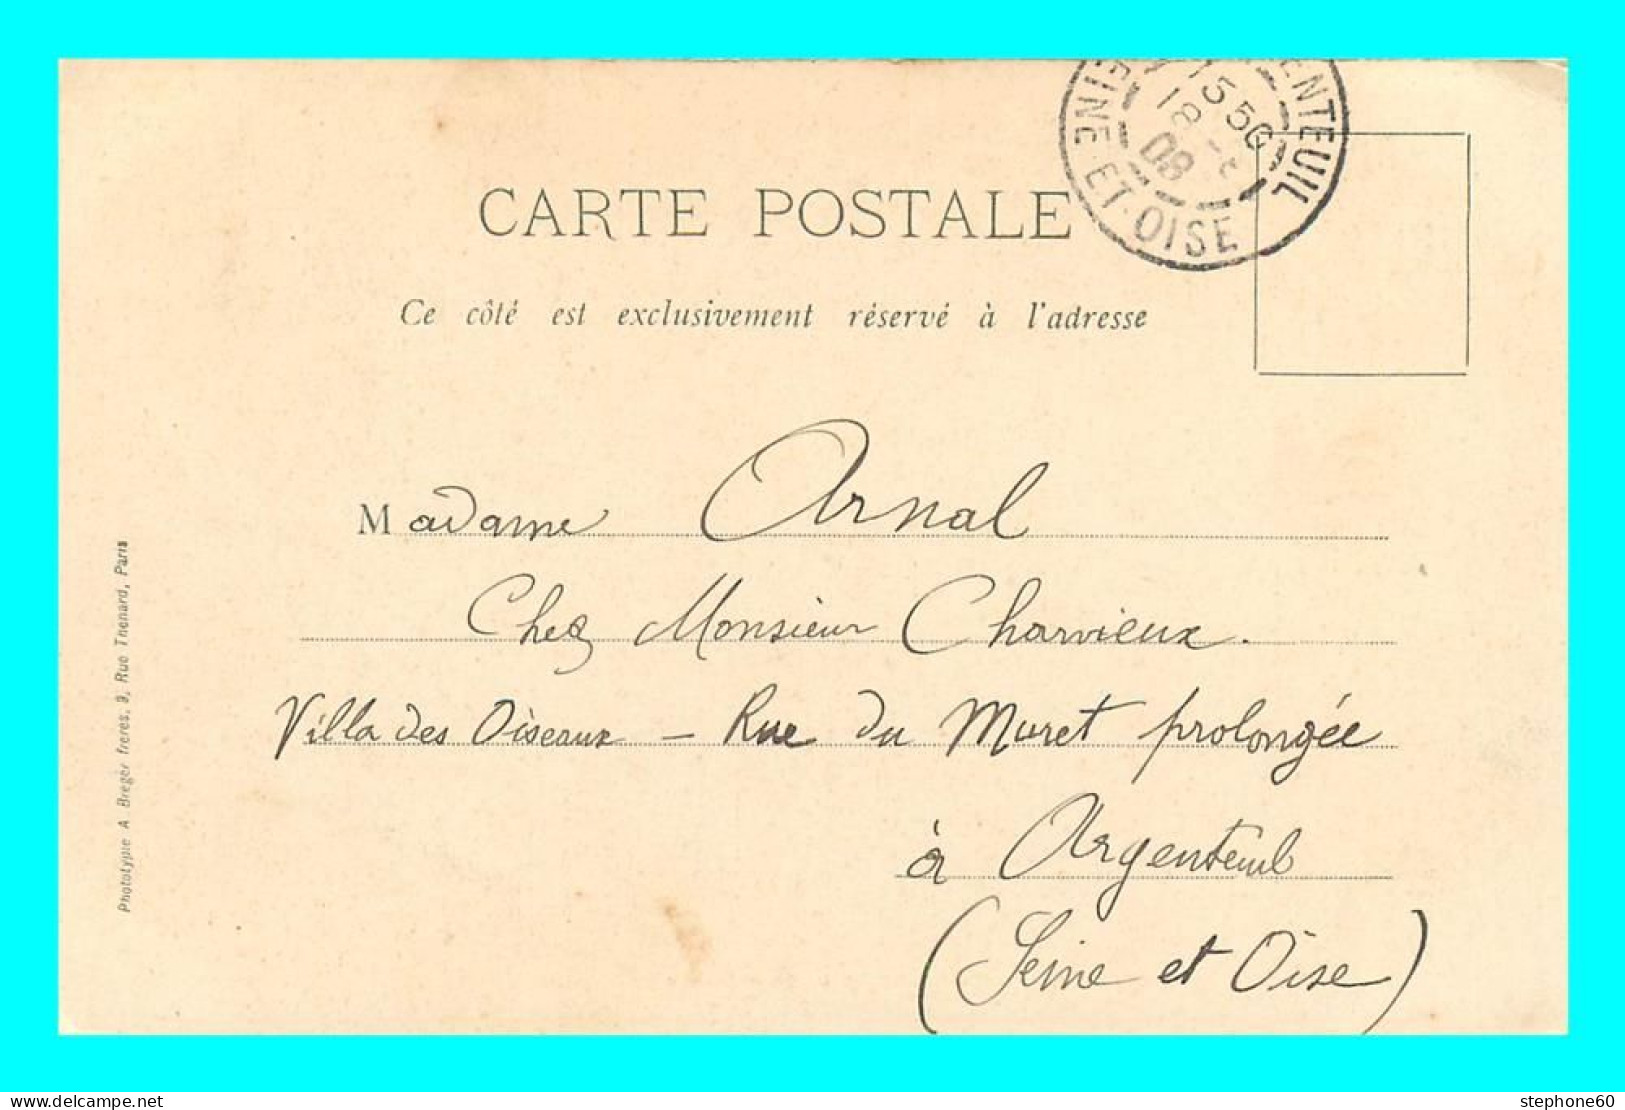 ENTEUIL
EINE ET OISE
15 50
18
08
CARTE POSTALE
Ce côté est exclusivement réservé à l'adresse
Madame Arnal
Chez Monsieur Charvieux.
Villa des Oiseaux — Rue du Muret prolongée
à Argenteuil
(Seine et Oise)
Phototypie A Breger freres, 9, Rue Thenard, Paris
www.delcampe.net
stephone60